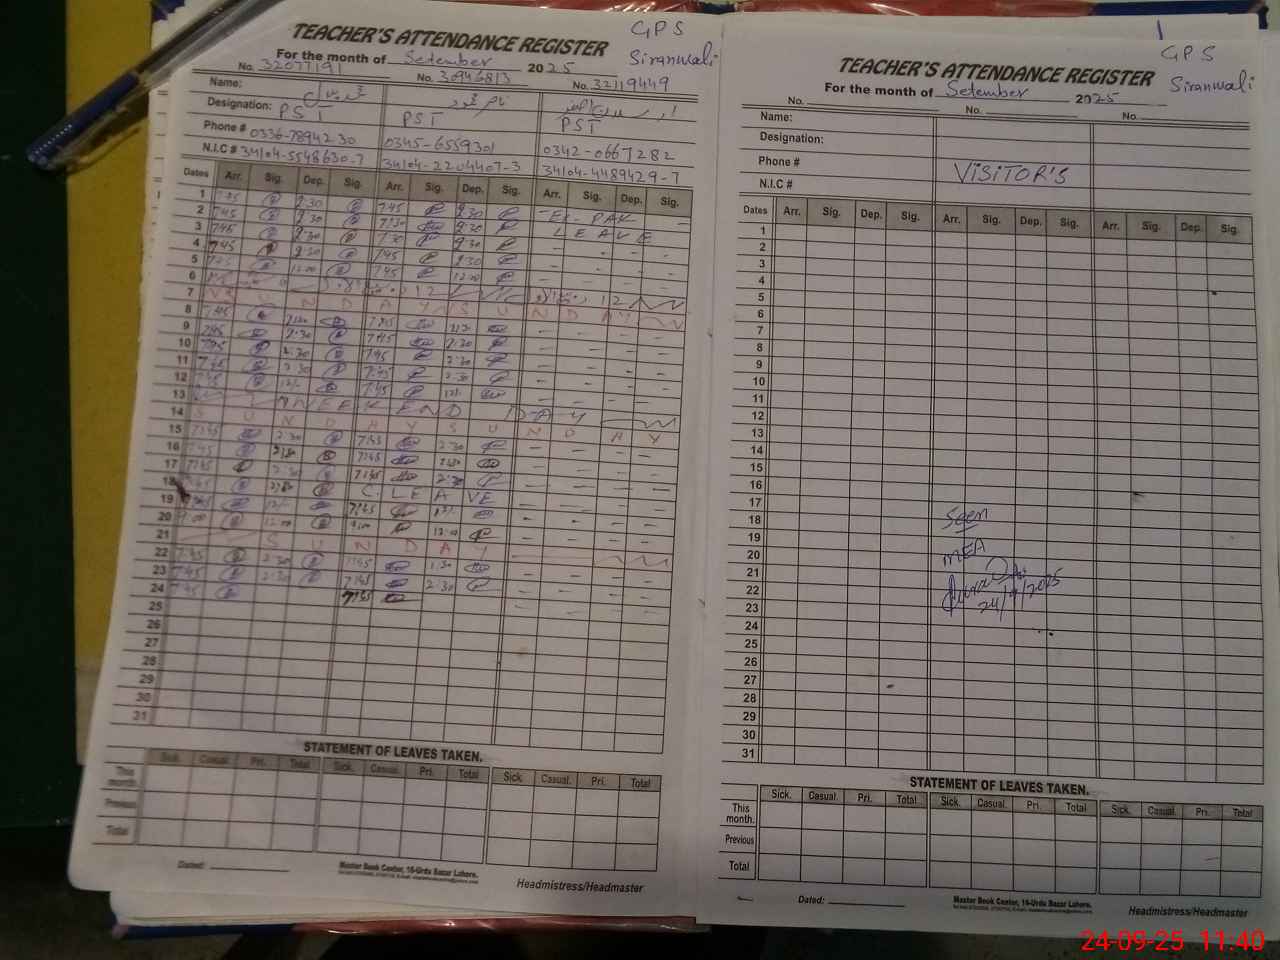 TEACHER'S ATTENDANCE REGISTER
GPS
Siranwali
For the month of Setember 2025
No. 32077191 No. 30946813 No. 32119449
Name:
Designation: PST PST PST
Phone # 0336-7894230 0345-6559301 0342-0667282
N.I.C # 34104-5548630-7 34104-2204407-3 34104-4489429-7
Dates Arr. Sig. Dep. Sig. Arr. Sig. Dep. Sig. Arr. Sig. Dep. Sig.
1 7:45 2:30 7:45 2:30 Ex-PAK
2 7:45 2:30 7:30 2:30 LEAVE
3 7:45 2:30 7:30 2:30
4 7:45 2:30 7:45 2:30
5 7:45 12:00 7:45 12:00
6 12 12
7 SUNDAY SUNDAY
8 7:45 7:45
9 7:45 2:30 7:45 2:30
10 7:45 2:30 7:45 2:30
11 7:45 2:30 7:45 2:30
12 7:45 12/- 7:45 12/-
13 WEEK END DAY
14 SUNDAY SUNDAY
15 7:45 2:30 7:45 2:30
16 7:45 2:30 7:45 2:30
17 7:45 2:30 7:45 2:30
18 7:45 2:30 C. LEAVE
19 7:45 12/- 7:45 12/-
20 9:00 12:00 9:00 12:00
21 SUNDAY
22 7:45 2:30 7:45 1:30
23 7:45 2:30 7:45 2:30
24 7:45 7:45
25
26
27
28
29
30
31
STATEMENT OF LEAVES TAKEN.
Sick. Casual. Pri. Total Sick. Casual. Pri. Total Sick. Casual. Pri. Total
This month.
Previous
Total
Dated:
Master Book Center, 16-Urdu Bazar Lahore.
Headmistress/Headmaster
TEACHER'S ATTENDANCE REGISTER
GPS
Siranwali
For the month of Setember 2025
No. No. No.
Name:
Designation:
Phone #
VISITOR'S
N.I.C #
Dates Arr. Sig. Dep. Sig. Arr. Sig. Dep. Sig. Arr. Sig. Dep. Sig.
1
2
3
4
5
6
7
8
9
10
11
12
13
14
15
16
17
18 Seen
19
20 MEA
21
22
23 24/9/2025
24
25
26
27
28
29
30
31
STATEMENT OF LEAVES TAKEN.
Sick. Casual. Pri. Total Sick. Casual. Pri. Total Sick. Casual. Pri. Total
This month.
Previous
Total
Dated:
Master Book Center, 16-Urdu Bazar Lahore.
Headmistress/Headmaster
24-09-25 11:40